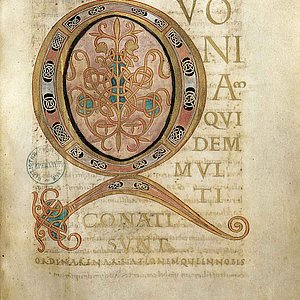 QVO
NI
Am
QUI
DEM
MVL
TI
CONATI
SVNT
ORDINARENARRATIONEMQUEINNOBIS